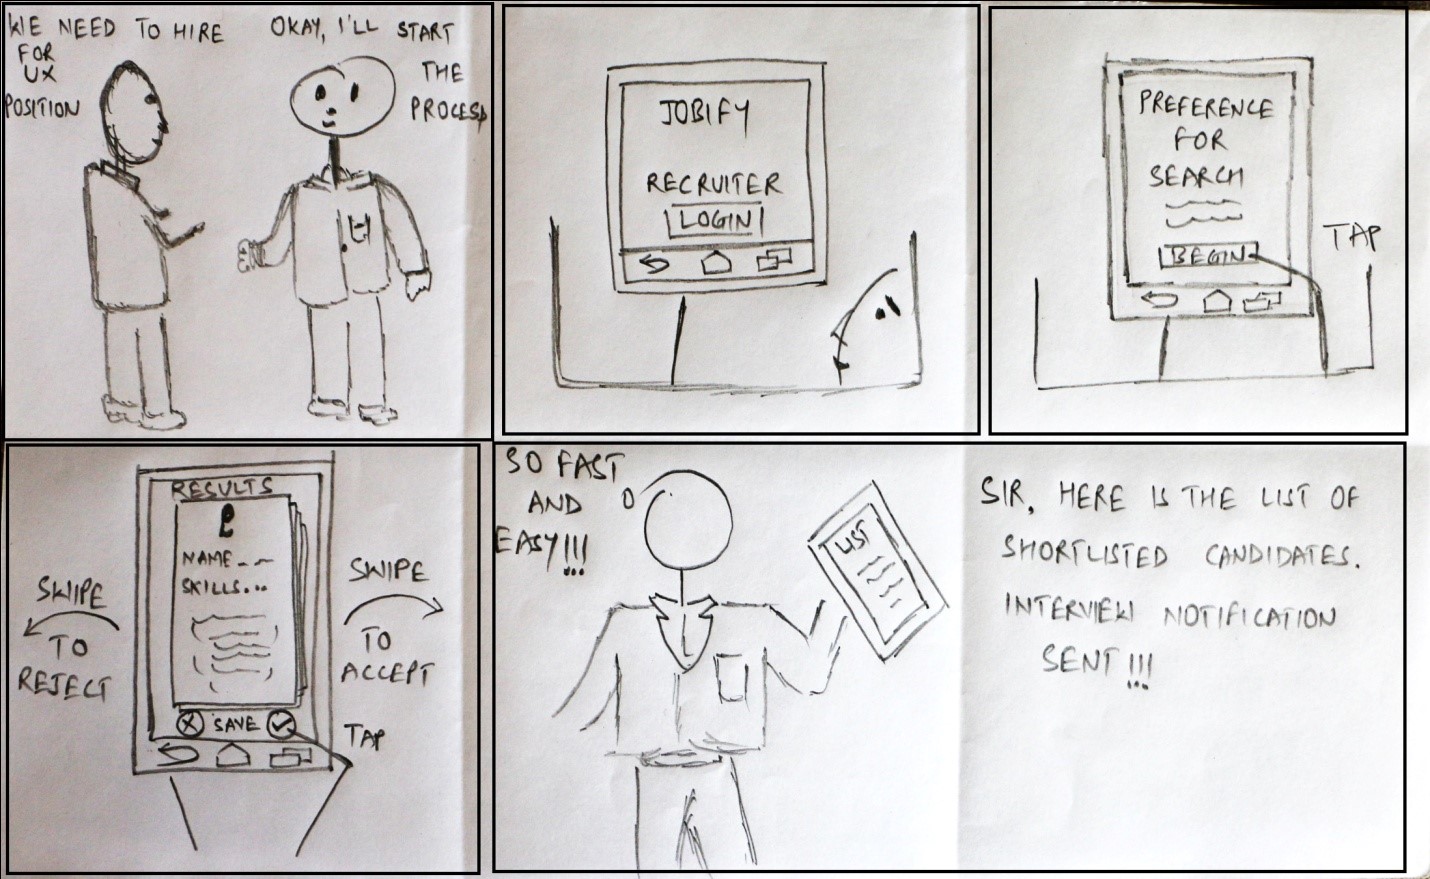 WE NEED TO HIRE
FOR
UX
POSITION
OKAY, I'LL START
THE
PROCESS
JOBIFY
RECRUITER
LOGIN
PREFERENCE
FOR
SEARCH
BEGIN
TAP
RESULTS
NAME
SKILLS...
SWIPE
TO
REJECT
SWIPE
TO
ACCEPT
SAVE
TAP
SO FAST
AND
EASY!!!
LIST
SIR, HERE IS THE LIST OF
SHORTLISTED CANDIDATES.
INTERVIEW NOTIFICATION
SENT!!!